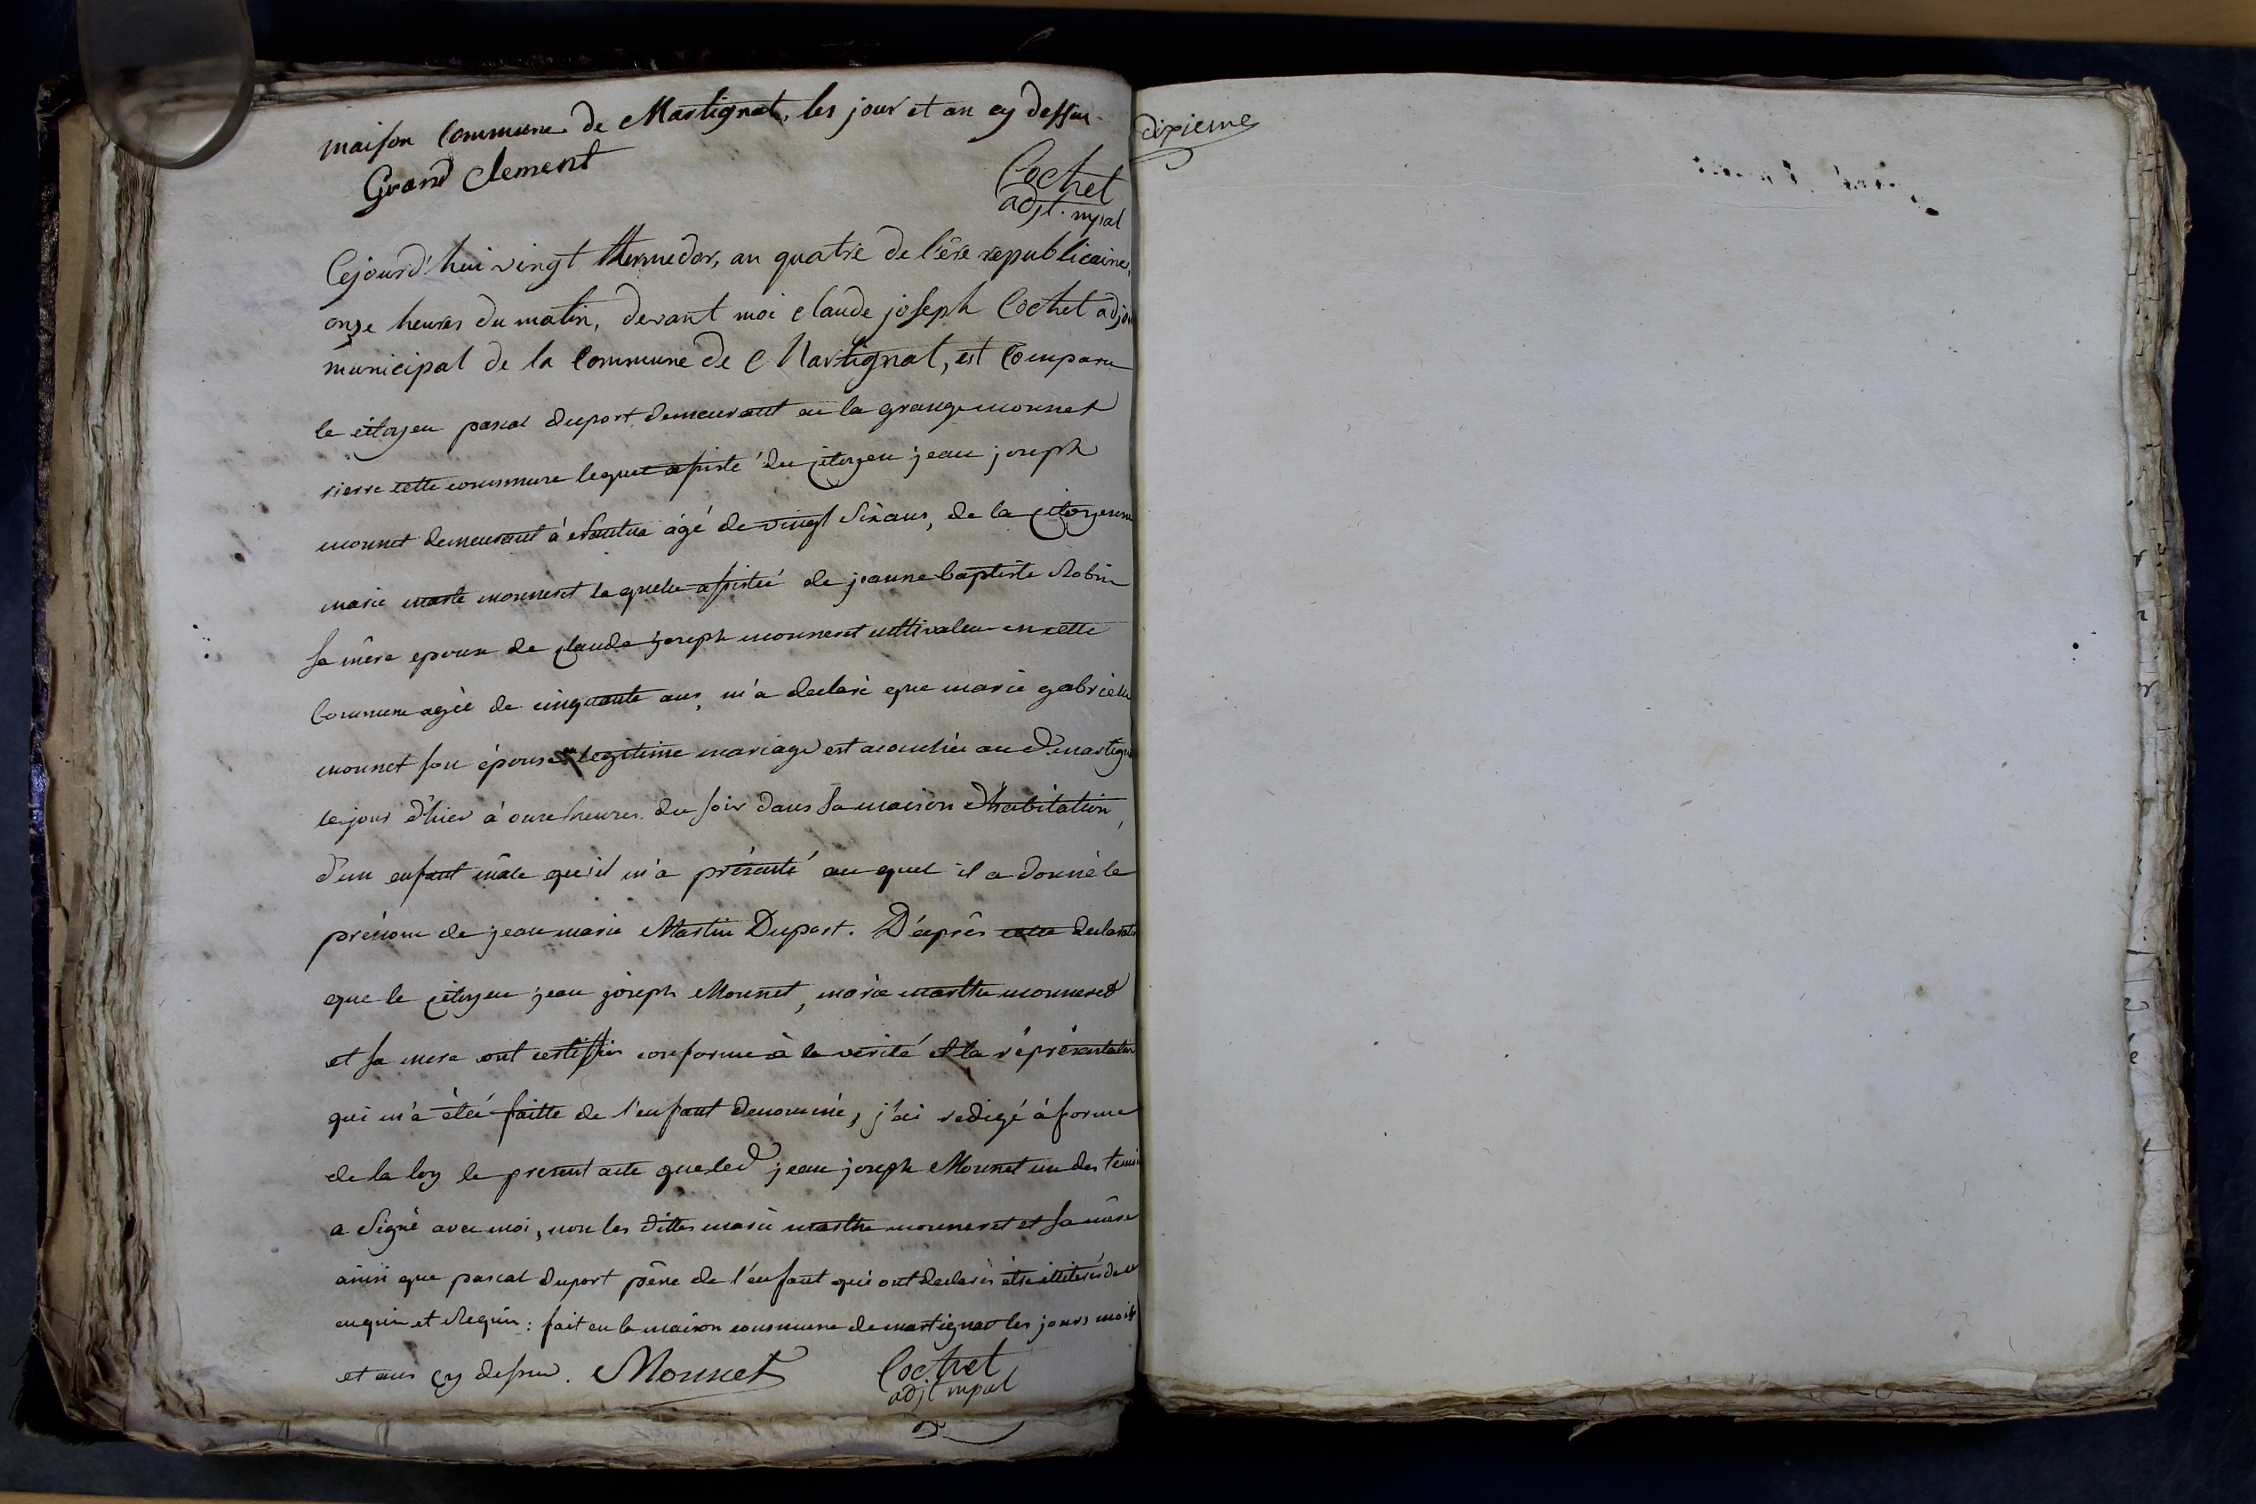 maison commune de Martignat, les jour et an cy dessus.
Grand Clement
Cochet
adjt. mpal
Cejourd'hui vingt thermedor, an quatre de l'ère republicaine,
onze heures du matin, devant moi claude joseph Cochet adjoi
municipal de la Commune de Martignat, est Comparu
le citoyen pascal duport demeurant en la grange monnet
rierre cette commune lequel assisté du citoyen jean joseph
monnet demeurant à Nantua âgé de vingt six ans, de la citoyenne
marie marte monneret la quelle assistée de jeanne baptiste Robin
sa mère epouse de claude joseph monneret cultivateur en cette
Commune agée de cinquante ans, m'a declaré que marie gabrielle
monnet son épouse en legitime mariage est acouchée aud. martigna
le jour d'hier à onze heures du soir dans sa maison d'habitation,
d'un enfant mâle qu'il m'a présenté au quel il a donné le
prénom de jean marie Martin Duport. D'après cette declaratio
que le citoyen jean joseph Monnet, marie marthe monneret
et sa mere ont certiffiés conforme à la verité et la réprésentation
qui m'a étéé faitte de l'enfant denommé, j'ai redigé à forme
de la loy le present acte que led. jean joseph Monnet un des temoi
a signé avec moi, non les dittes marie marthe monneret et sa mère
ainsi que pascal duport père de l'enfant qui ont declarés être illiterés de ce
enquis et Requis : fait en la maison commune de martignat les jours mois
et ans cy dessus. Monnet Cochet
adjt mpal
dixieme